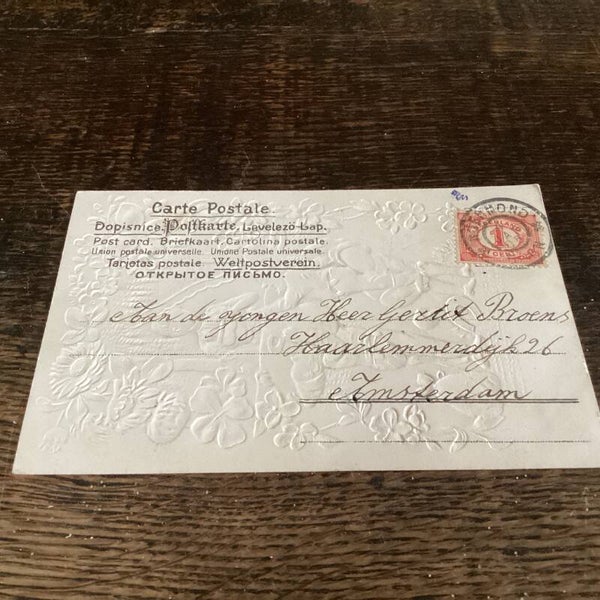 Carte Postale.
Dopisnice. Postkarte. Levelező-Lap.
Post card. Briefkaart. Cartolina postale.
Union postale universelle. Unione Postale universale.
Tarjetas postale. Weltpostverein.
ОТКРЫТОЕ ПИСЬМО.
1
CENT
Aan de Jongen Heer Gerrit Broens
Haarlemmerdijk 26
Amsterdam